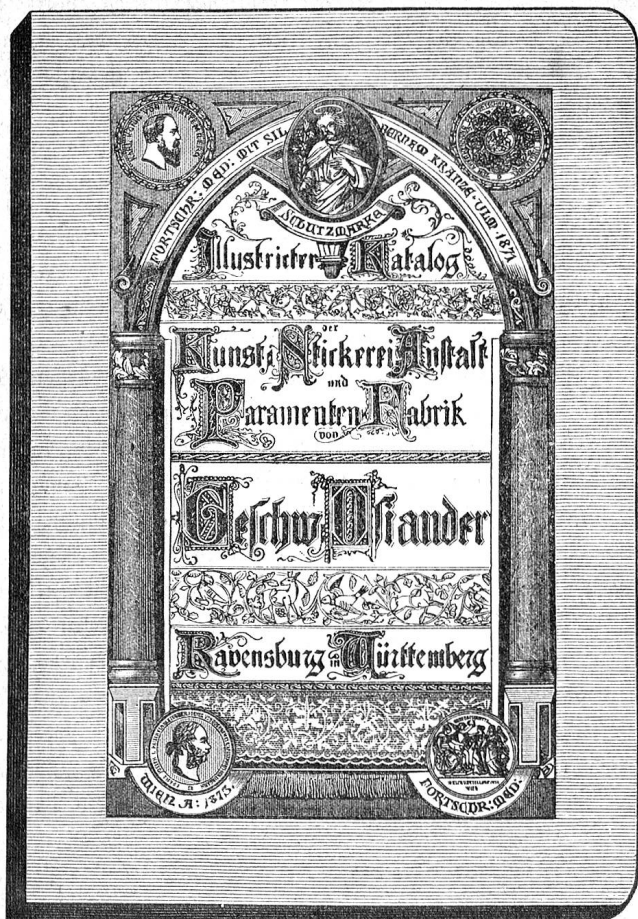 FORTSCHR: MED: MIT SIL BERNEM KRANZE · ULM · 1871
SCHUTZMARKE
Illustrirter Katalog
der
Kunst-Stickerei Anstalt
und
Paramenten Fabrik
von
Geschw. Osiander
Ravensburg in Württemberg
WIEN A: 1873.
FORTSCHR: MED: